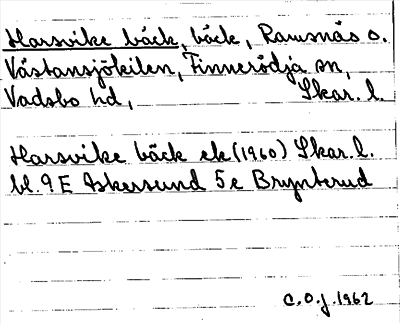 Harsvike bäck, bäck, Ramsnäs o.
Västansjökilen, Finnerödja sn,
Vadsbo hd, Skar. l.
Harsvike bäck ek (1960) Skar. l.
bl. 9 E Askersund 5 e Brynterud
C.O.J. 1962